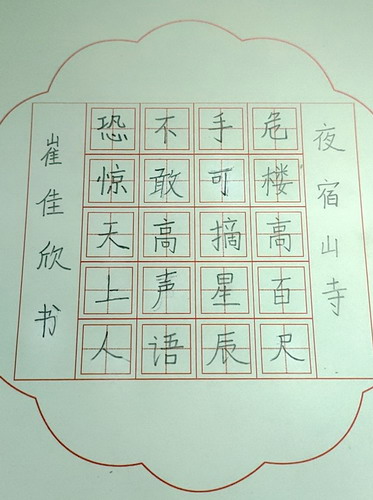 夜宿山寺
危楼高百尺
手可摘星辰
不敢高声语
恐惊天上人
崔佳欣书